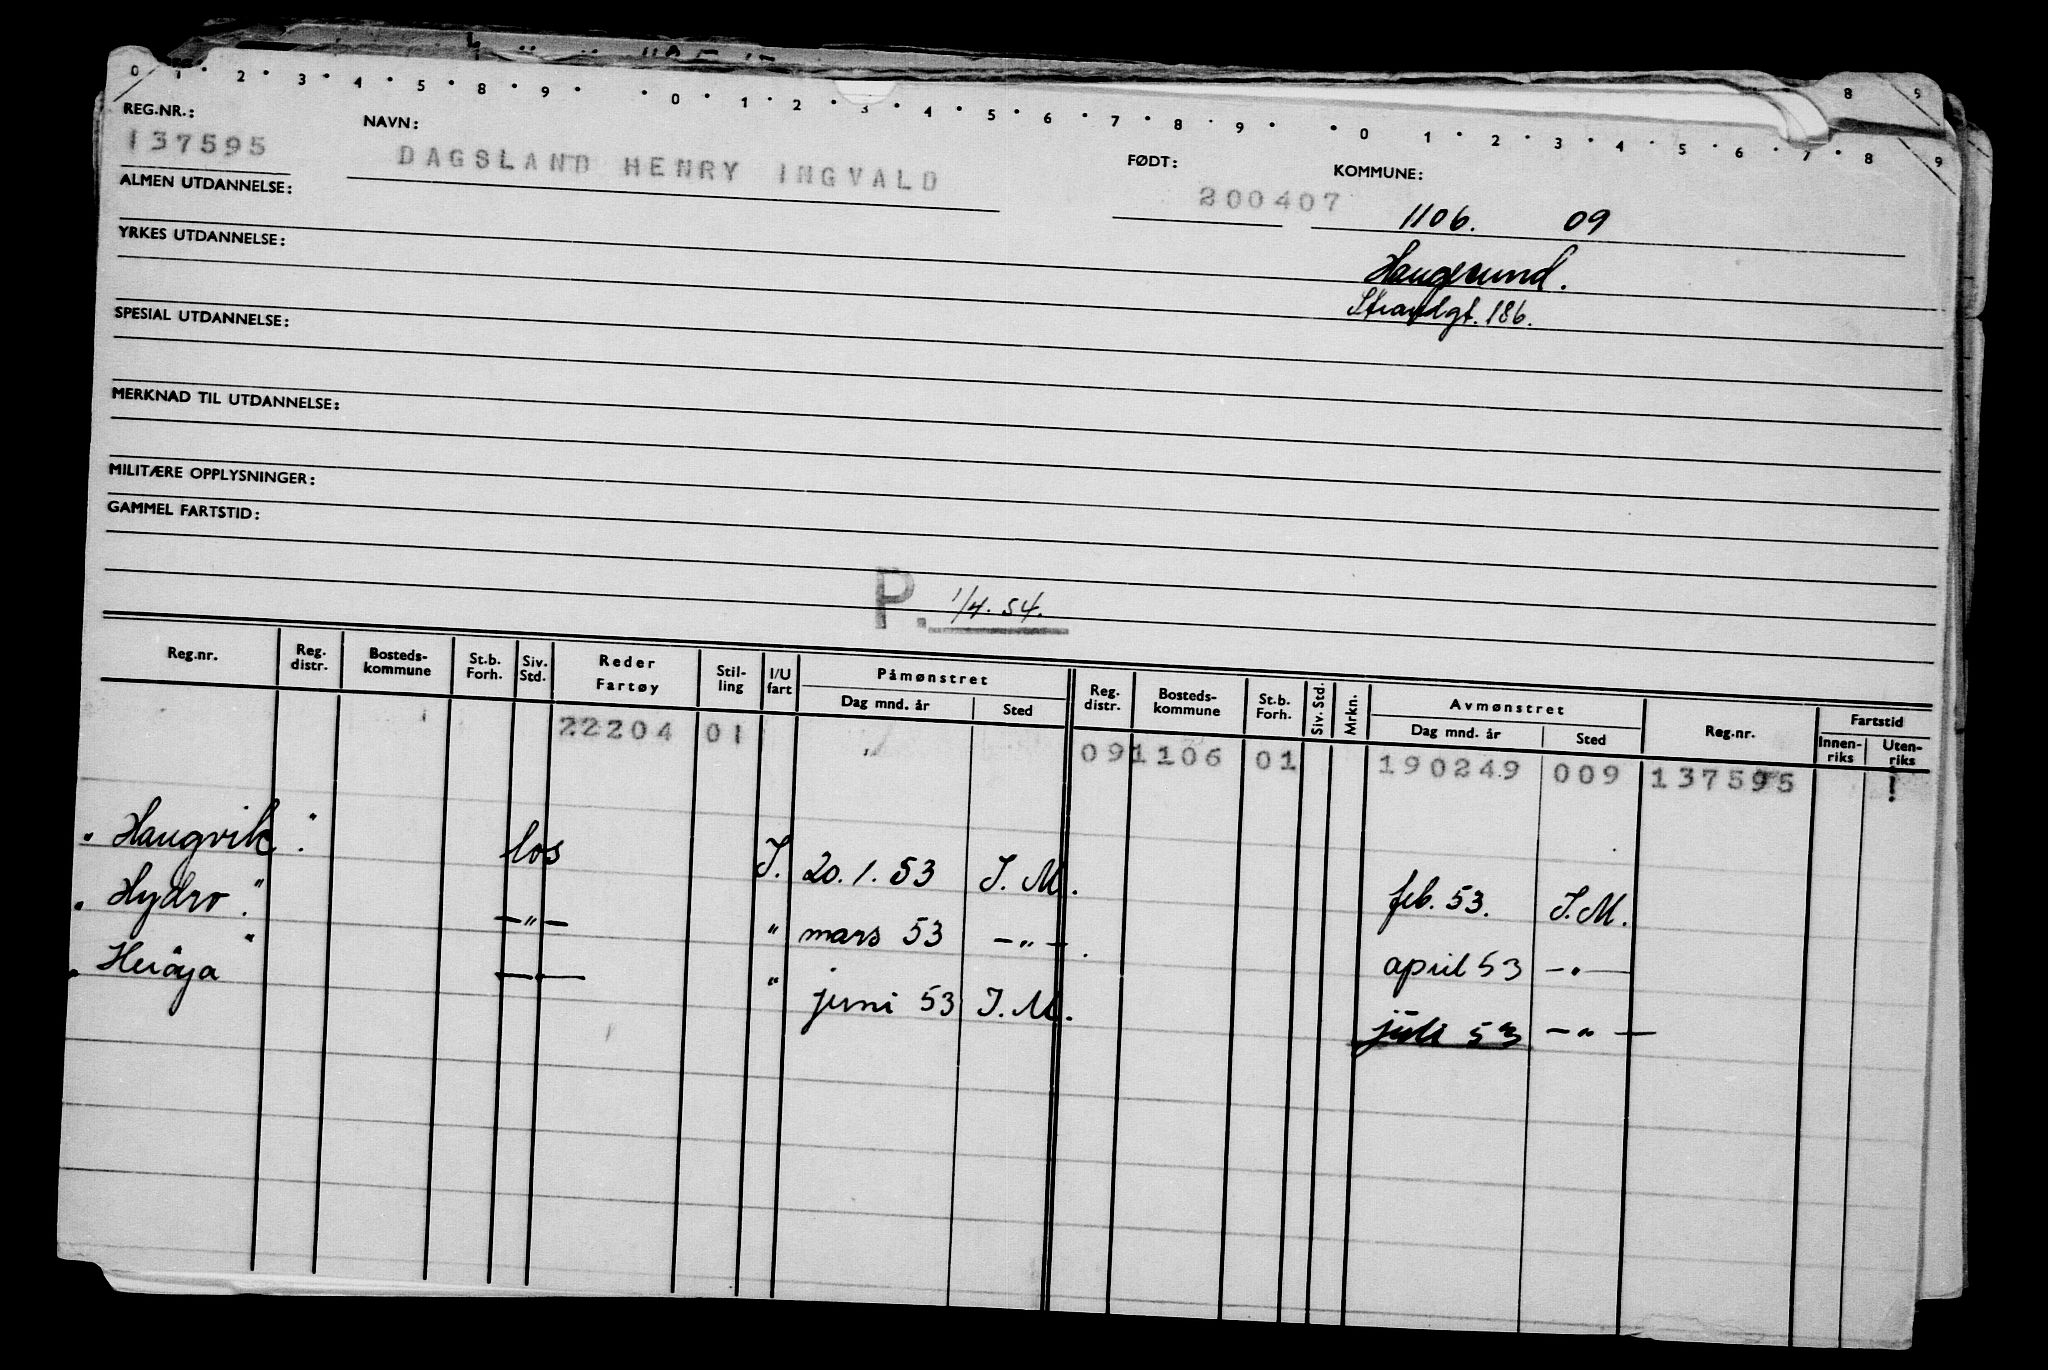 0 1 • 2 • 3 • 4 • 5 • 8 • 9 • • 0 • 1 • 2 • 3 • 4 • 5 • 6 • 7 • 8 • 9 • • 0 1 • 2 • 3 • 4 • 5 • 6 • 7 • 8 9
8 9
REG.NR.: NAVN: FØDT: KOMMUNE:
137595 DAGSLAND HENRY INGVALD 200407 1106. 09
ALMEN UTDANNELSE:
YRKES UTDANNELSE: Haugesund.
Strandgt. 186.
SPESIAL UTDANNELSE:
MERKNAD TIL UTDANNELSE:
MILITÆRE OPPLYSNINGER:
GAMMEL FARTSTID:
P. 1/4. 54.
Reg.nr. Reg. distr. Bosteds-kommune St.b. Forh. Siv. Std. Reder Fartøy Stil-ling I/U fart Påmønstret Dag mnd. år Sted Reg. distr. Bosteds-kommune St.b. Forh. Siv. Std. Mrkn. Avmønstret Dag mnd. år Sted Reg.nr. Fartstid Innen-riks Uten-riks
22204 01 09 1106 01 190249 009 137595 !
" Haugvik " . los I. 20.1.53 I.M. feb. 53. I.M.
" Hydro " . — " — " mars 53 — " — . april 53 — " —
" Herøya " — " — " juni 53 I.M. juli 53 — " —